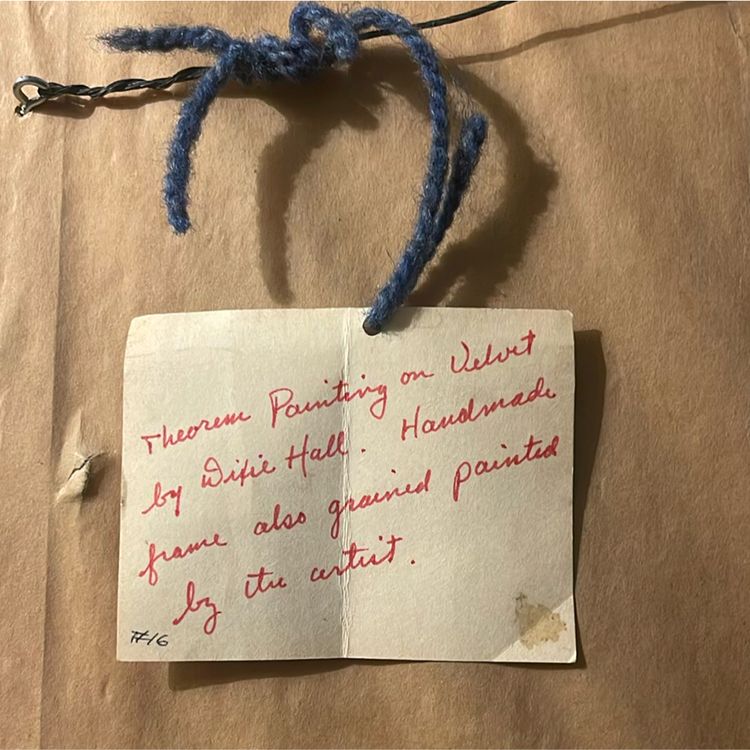 Theorem Painting on Velvet
by Dixie Hall. Handmade
frame also grained painted
by the artist.
#16